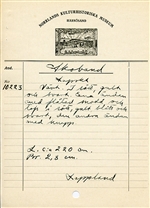 NORRLANDS KULTURHISTORISKA MUSEUM
HÄRNÖSAND
Ant.
Skoband
No
18223
Lapskt
Vävt i rött, gult
och svart. Ena änden
med flätad snodd, och
i rött, gult, blått och
svart, den andra änden
med knapp.
L. c:a 220 cm.
Br. 2,3 cm.
Lappland